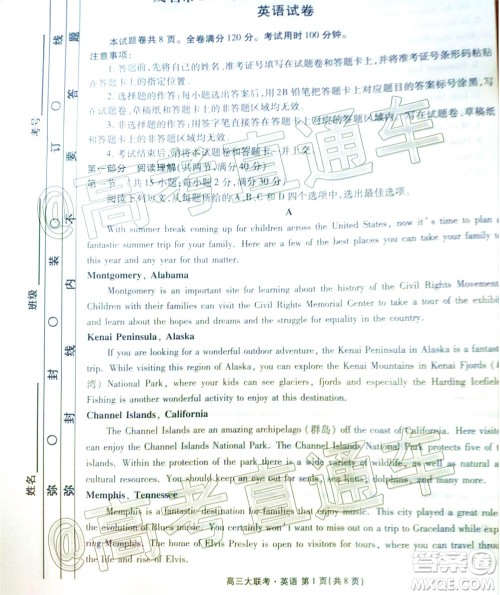 英语试卷
本试题卷共 8 页。全卷满分 120 分。考试用时 100 分钟。
注意事项:
1. 答题前,先将自己的姓名、准考证号填写在试题卷和答题卡上,并将准考证号条形码粘贴
到答题卡上的指定位置。
2. 选择题的作答:每小题选出答案后,用 2B 铅笔把答题卡上对应题目的答案标号涂黑。写在
试题卷、草稿纸和答题卡上的非答题区域均无效。
3. 非选择题的作答:用签字笔直接写在答题卡上对应的答题区域内。写在试题卷、草稿
纸和答题卡上的非答题区域均无效。
4. 考试结束后,请将本试题卷和答题卡一并上交。
第一部分 阅读理解(共两节,满分 40 分)
第一节 (共 15 小题;每小题 2 分,满分 30 分)
阅读下列短文,从每题所给的 A、B、C 和 D 四个选项中,选出最佳选项。
A
With summer break coming up for children across the United States, now it's time to plan a
fantastic summer trip for your family. Here are a few of the best places you can take your family to
this year and any year for that matter.
Montgomery, Alabama
Montgomery is an important site for learning about the history of the Civil Rights Movement.
Children with their families can visit the Civil Rights Memorial Center to take a
and learn about the hopes and dreams and the struggles
Kenai Peninsula, Alaska
If you are looking for a wonderful outdoor adventure, the Kenai Peninsula in Alaska
While visiting this region of Alaska, you can explore the Kenai Mountains and Kenai Fjords(
湾) National Park, where your kids can see glaciers, fjords and especially the Harding Icefield.
Fishing is another wonderful activity to enjoy at this destination.
Channel Islands, California
The Channel Islands are an amazing archipelago (群岛) off the coast of California. Here
can enjoy the Channel Islands National Park. The Channel Islands National Park protects five of
islands. Within the protection of the park, there is a wide variety of wildlife, as well as
cultural resources. You should keep an eye out for seals, sea lions, dolphins, and
Memphis, Tennessee
Memphis is a fantastic destination for families to enjoy music. This city played a great
the evolution of Blues music. You certainly won't want to miss out on a trip to Graceland while
The home of Elvis Presley is open to visitors for tours, where you can travel through
the life and rise of Elvis.
高三大联考·英语 第 1 页(共 8 页)
考号
班级
姓名
弥 封 线 内 不 要 答 题
弥 封 装 订 线
@高考直通车
@高考直通车